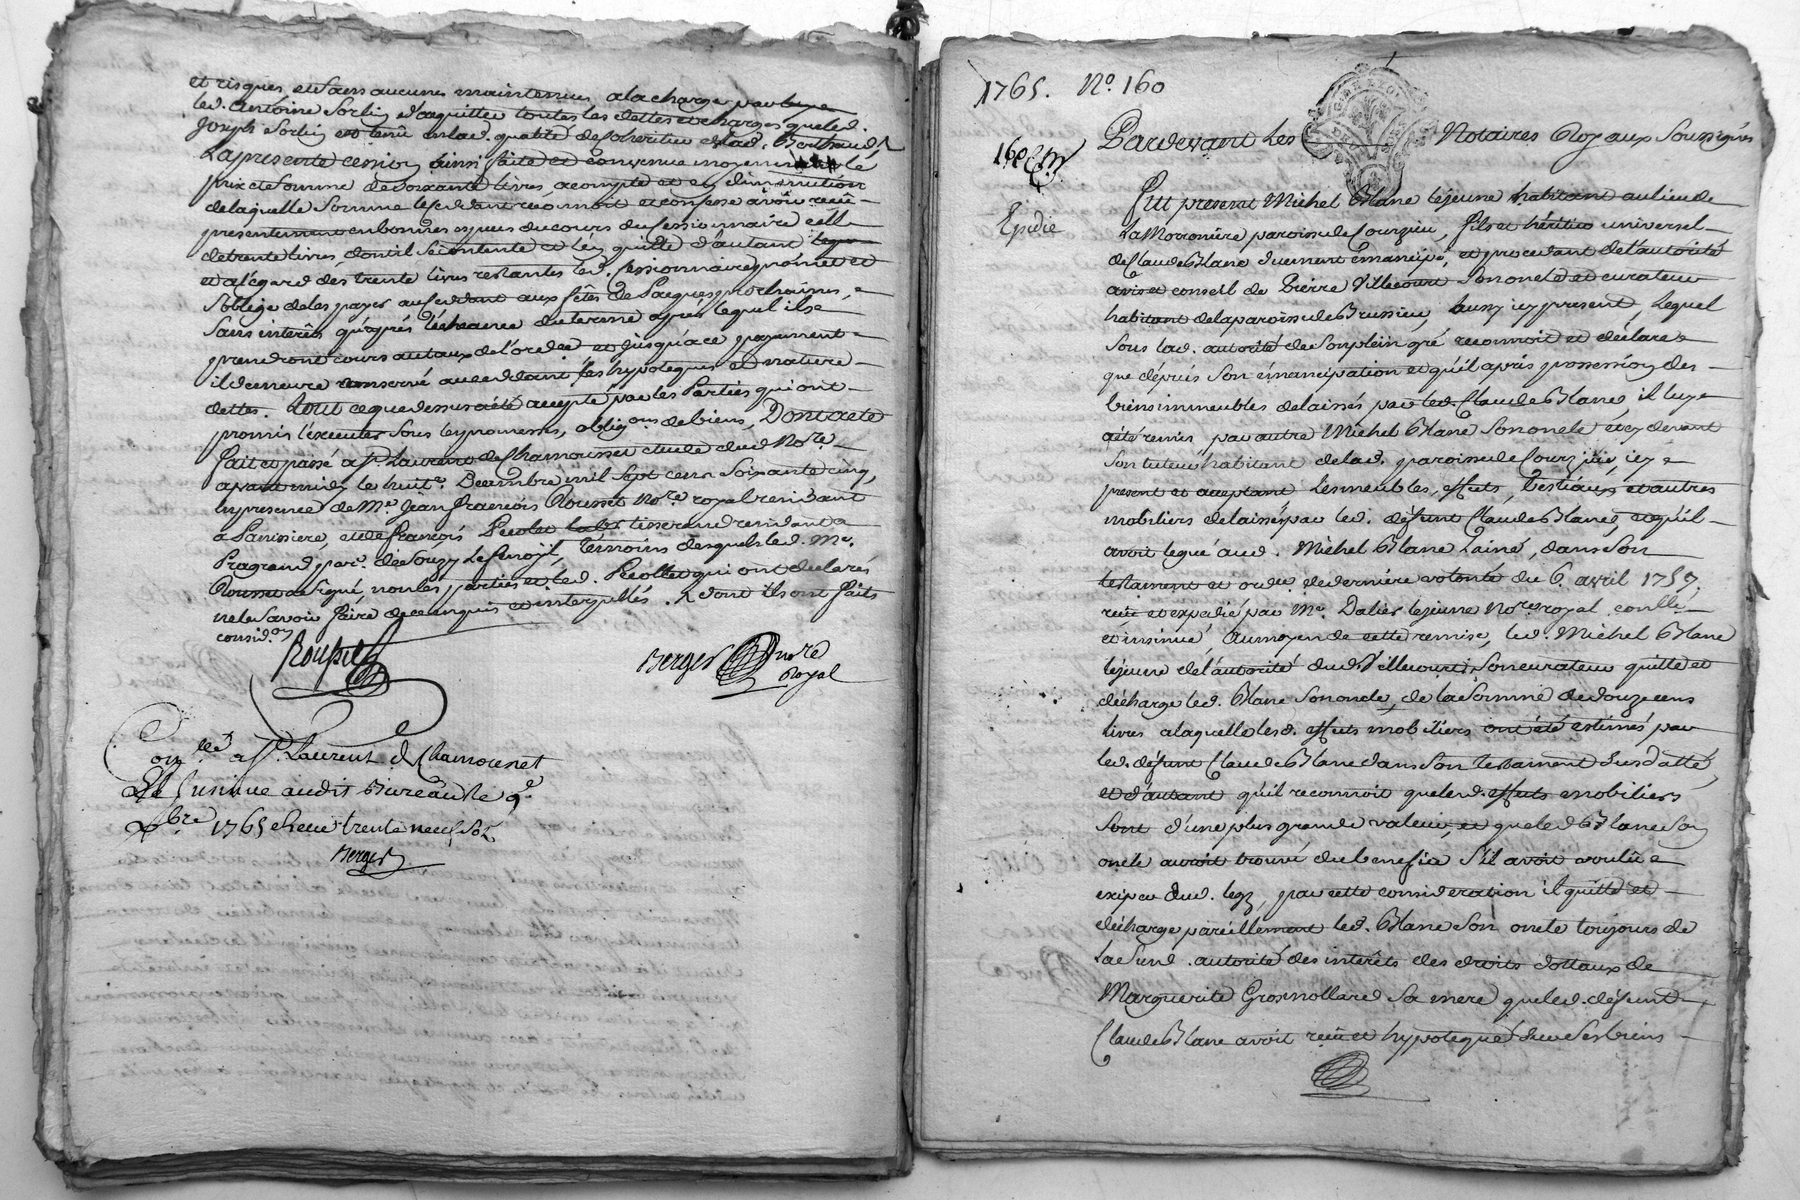 et risques, et sans aucunes maintenues, a la charge par
led. Antoine Sorlin d'aquitter toutes les dettes et charges que led.
Joseph Sorlin est tenû en lad. qualité de
La presente cession ainsi faite et convenue moyennant le
prix et somme de soixante livres acompte et en diminution
de laquelle somme le cedant reconnoit et confesse avoir reçu
presentement en bonnes especes du cours du cessionnaire celle
de trente livres, dont il se contente et l'en quitte d'autant
et a l'egard des trente livres restantes led. Cessionnaire promet et
s'oblige de les payer au cedant aux fêtes de Paques prochaines,
sans interêts qu'après l'écheance du terme apres lequel ils
prendront cours au taux de l'ordce et jusqu'a ce payement
il demeure conservé au cedant ses hypoteques et nature
dettes. Tout ce que dessus a été accepté par les Parties qui ont
promis l'executer sous les promesses, obligons de biens, Dont acte
fait et passé a St. Laurent de Chamousset etude dud Nore.
avant midy le huite. Decembre mil sept cens soixante cinq,
en presence de Me. Jean François Rousset Nore royal residant
a et de François Pecolet tisserand residant a
Pragrand par. de Souzy Temoins desquels led. Me.
Rousset a signé, non les parties et led. Pecollet qui ont declarés
ne le savoir faire de ce enquis et interpellés. dont ils ont faits
consid.on
Rousset
Berger Nore
Royal
Conllé a St. Laurent de Chamousset
Et Insinué audit Bureau le 9e
Xbre 1765 Receu trente neuf sols
Berger
1765. No. 160
160e
Expdié
Pardevant Les Notaires Royaux soussignés
Fut present Michel Blanc lejeune habitant au lieu de
La Morronière paroisse de Courzieu, fils et héritier universel
de Claude Blanc duement émancipé, et procedant de l'autorité
avis et conseil de Pierre Villecourt son oncle et curateur
habitant de la paroisse de Brussieu, aussy icy present, Lequel
sous lad. autorité de son plein gré reconnoit et déclare
que dépuis son émancipation et qu'il a pris possession des
biens immeubles delaissés par led. Claude Blanc, il luy
a été remis par autre Michel Blanc son oncle et cy devant
son tuteur habitant de lad. paroisse de Courzieu icy
present et acceptant Les meubles, effets, bestiaux et autres
mobiliers delaissé par led. défunt Claude Blanc, et qu'il
avoit legué aud. Michel Blanc L'ainé, dans son
testament et ordce de derniere volonté du 6. avril 1757.
reçu et expedié par Me. Dalier lejeune Nore royal conllé
et insinué, Au moyen de cette remise, led. Michel Blanc
lejeune de l'autorité dud Villecourt son curateur quitte et
décharge led. Blanc son oncle, de la somme de douze cens
livres a laquelle lesd. effets mobiliers ont été estimés par
led. défunt Claude Blanc dans son testament susdatté,
et d'autant qu'il reconnoit que lesd. effets mobiliers
sont d'une plus grande valeur, et que led Blanc son
oncle auroit trouvé du benefice s'il avoit voulû
exiper dud. legs, par cette consideration il quitte et
décharge pareillement led. Blanc son oncle toujours de
La susd. autorité des interêts des droits dottaux de
Marguerite Grosmollard sa mere que led. défunt
Claude Blanc avoit reçu et hypotequé sur ses biens